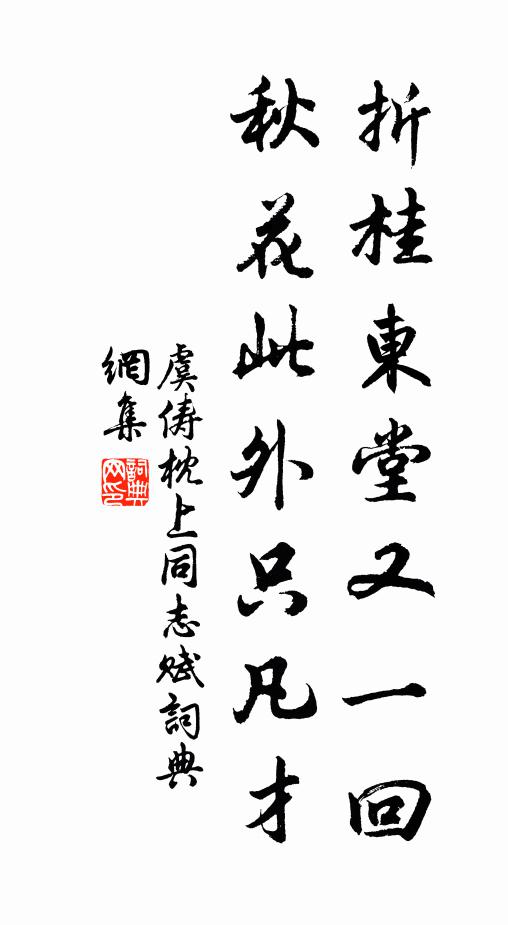 折桂東堂又一回
秋花此外只凡才
虞儔枕上同志賦詞典
網集
詞典網印